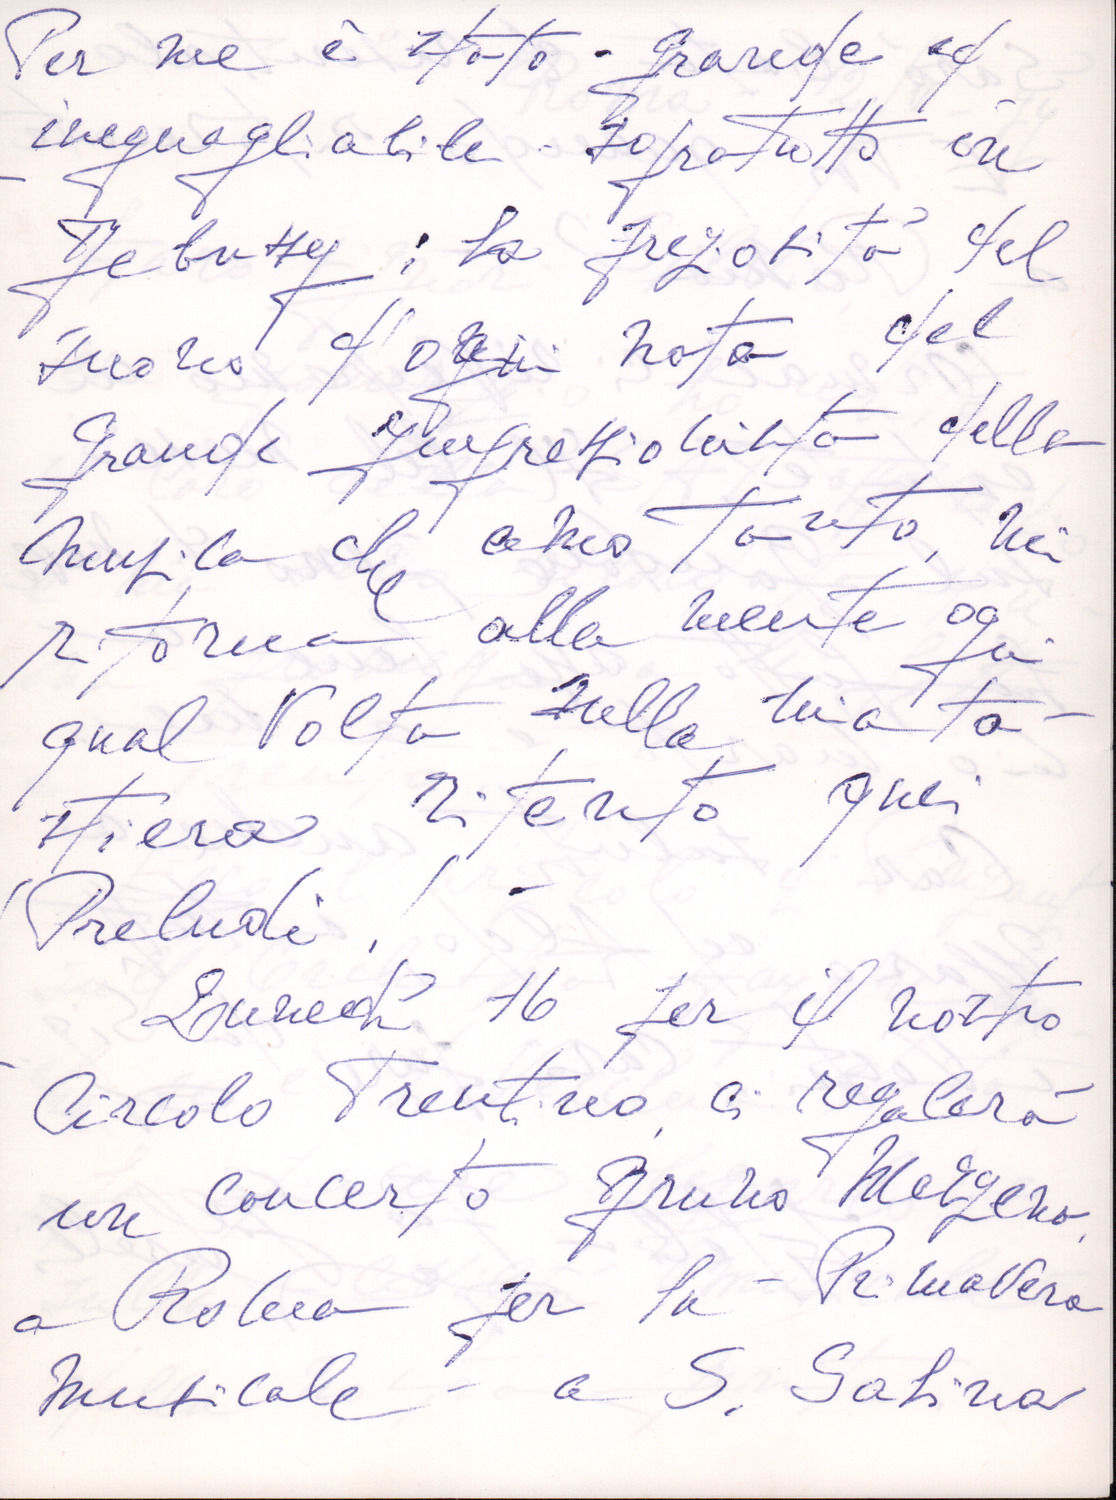 Per me è stato - grande ed
ineguagliabile - sopratutto in
Debussy ; la preziosità del
suono d'ogni nota del
grande Impressionista della
musica che amo tanto, mi
ritorna alla mente ogni
qual volta sulla mia ta-
stiera ritento quei
"Preludi" ! -
Lunedì 16 per il nostro
Circolo Trentino, ci regalerà
un concerto Bruno Mezzena,
a Roma per la - Primavera
Musicale - a S. Sabina